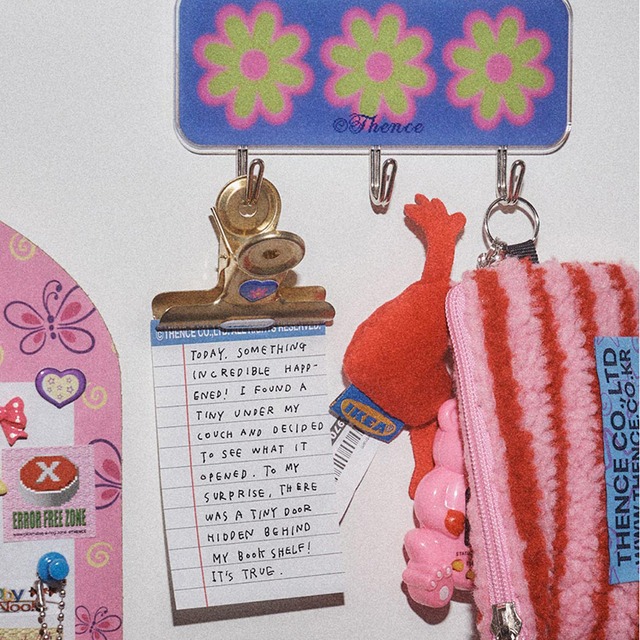 ©Thence
©THENCE CO.,LTD. ALL RIGHTS RESERVED.
TODAY, SOMETHING
INCREDIBLE HAPP-
ENED! I FOUND A
TINY UNDER MY
COUCH AND DECIDED
TO SEE WHAT IT
OPENED. TO MY
SURPRISE, THERE
WAS A TINY DOOR
HIDDEN BEHIND
MY BOOK SHELF!
IT'S TRUE.
IKEA
THENCE CO., LTD
X
ERROR FREE ZONE